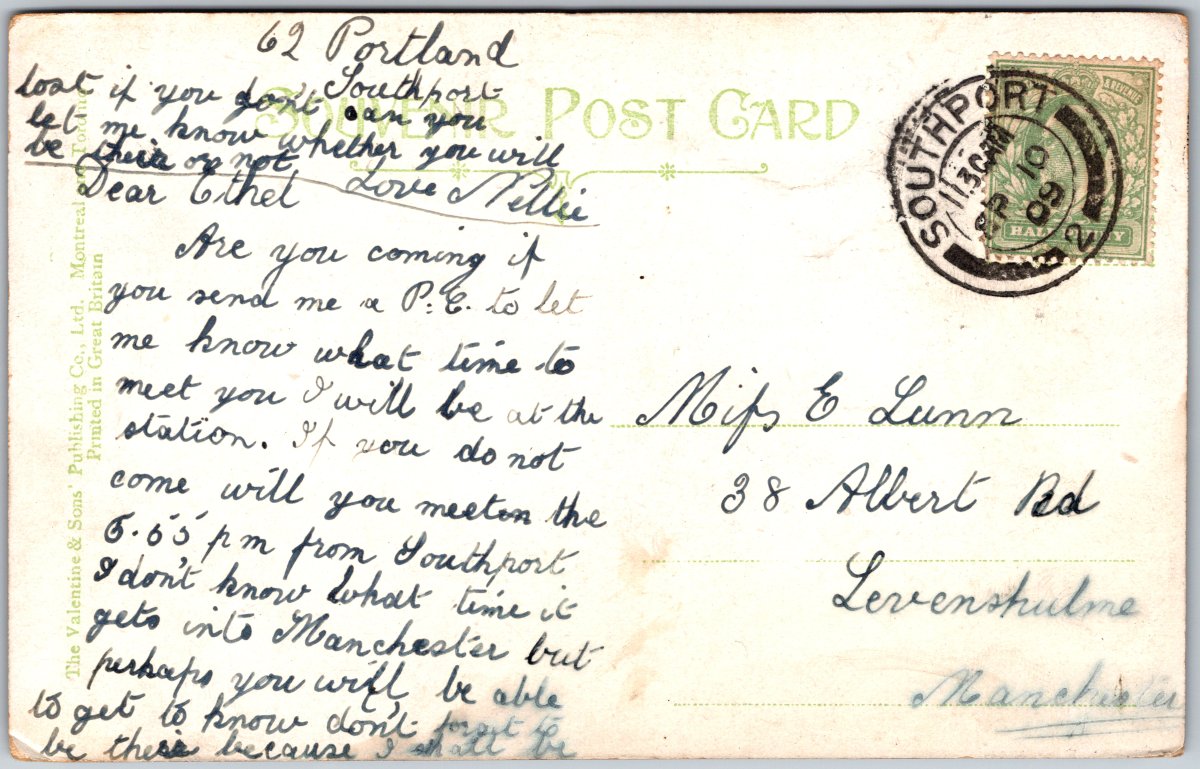 62 Portland
Southport
SOUVENIR POST CARD
Dear Ethel
Are you coming if
you send me a P.C. to let
me know what time to
meet you I will be at the
station. If you do not
come will you meet on the
5.55 pm from Southport
I don't know what time it
gets into Manchester but
perhaps you will be able
to get to know don't forget to
be there because I shall be
lost if you don't can you
let me know whether you will
be there or not
Love Nellie
Miss E Lunn
38 Albert Rd
Levenshulme
Manchester
SOUTHPORT
11.30AM
AP 10
09
2
HALFPENNY
The Valentine & Sons' Publishing Co., Ltd. Montreal and Toronto
Printed in Great Britain